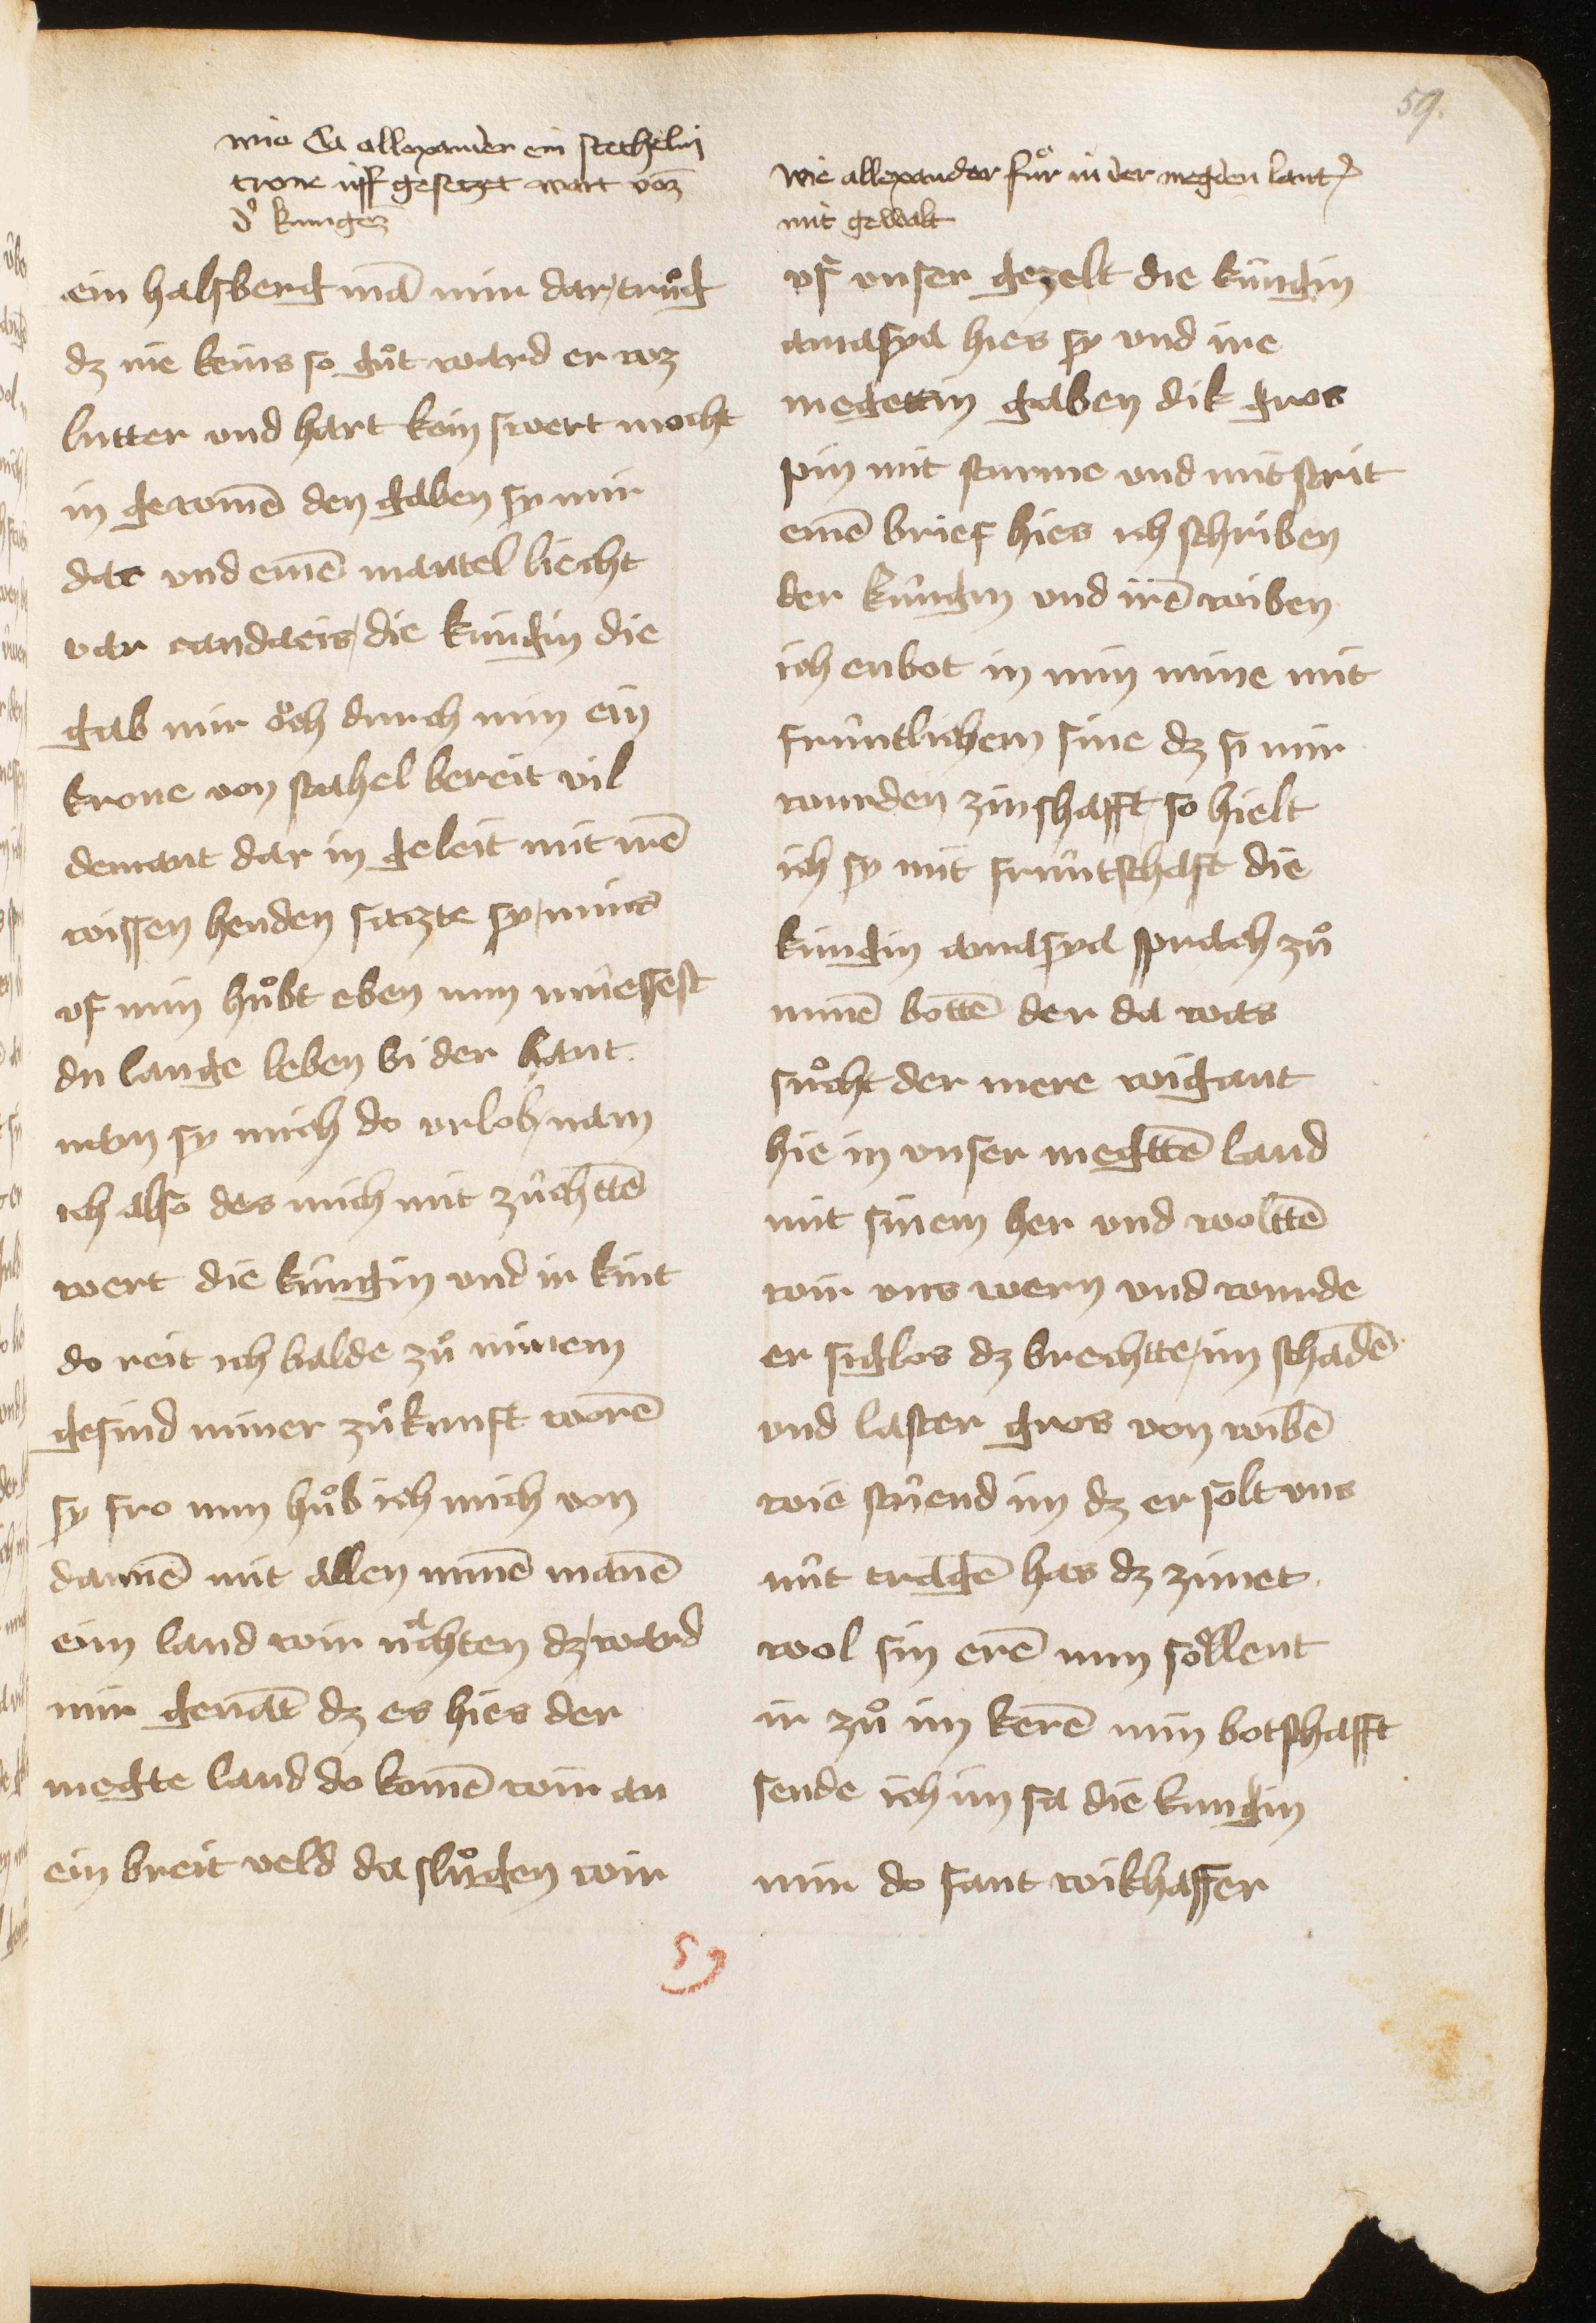 59.
wie allexander ein stechelin
crone uff gesetzet wart von
d' kungen
ein halsberg mā mir dar trůg
dz nie keins so gůt ward er wz
lutter und hart kein swert mocht
in gewinnē den gaben sy mir
dar und einē mantel liecht
var candacis die kúngin die
gab mir öch durch min ein
krone von stahel bereit vil
demant dar in geleit mit irē
wissen henden satzte sy mirs
uf min hůbt eben nun müessest
du lange leben bi der hant
nam sy mich do urlob nam
ich also des mich mit zúchttē
wert die kúngin und ir kint
do reit ich balde zů minem
gesind miner zůkunft worē
sy fro nun hůb ich mich von
dannē mit allen minē manē
einn land wir nachten dz ward
mir genāt dz es hies der
megte land do komē wir an
ein breit veld da slůgen wir
wie allexander fůr in der megden lant
mit gewalt
uf unser gezelt die kúngin
amasya hies sy und ire
megettin gaben dik gros
pin mit sturme und mit strit
einē brief hies ich schriben
der kúngin und irē wiben
ich enbot in min mine mit
frúntlichem sine dz si mir
wurden zinshafft so hielt
ich sy mit frúntschaft die
kúngin amasya sprach zů
minē bottē der da was
sůcht der mere wigant
hie in unser megttē land
mit sinem her und wolttē
wir uns wern und wurde
er siglos dz brechtte im schadē
und laster gros von wibē
wie stúend im dz er sölt uns
nút tragē has dz zimet
wol sin erē nun söllent
ir zů im kerē min botschafft
sende ich im sa die kungin
mir do sant wikhaffer
59